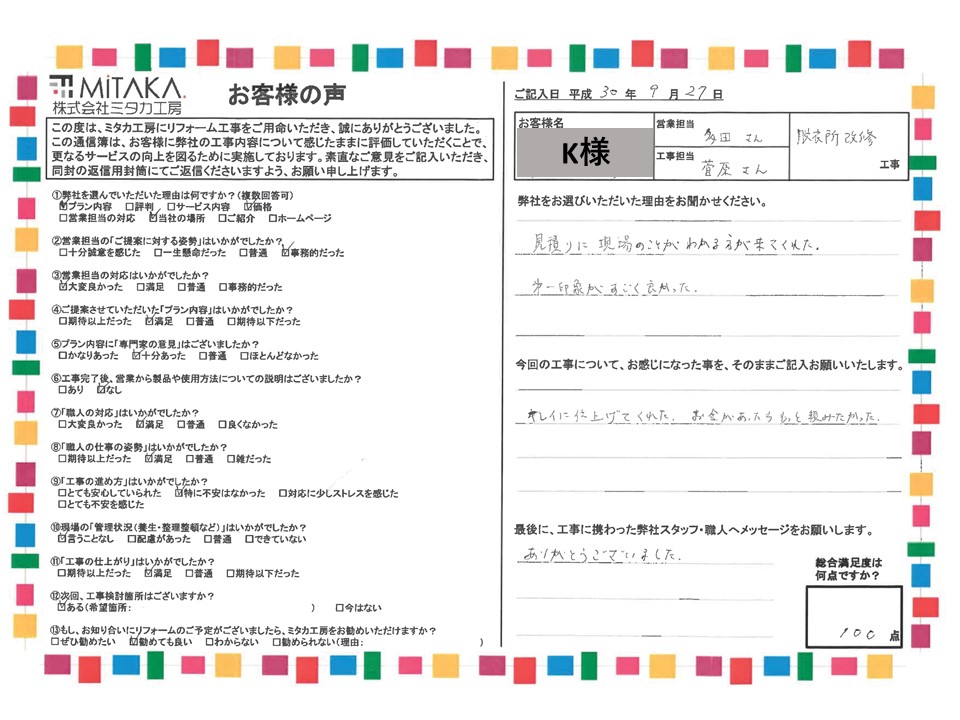 MiTAKA.
株式会社ミタカ工房
お客様の声
この度は、ミタカ工房にリフォーム工事をご用命いただき、誠にありがとうございました。
この通信簿は、お客様に弊社の工事内容について感じたままに評価していただくことで、
更なるサービスの向上を図るために実施しております。素直なご意見をご記入いただき、
同封の返信用封筒にてご返信くださいますよう、お願い申し上げます。
①弊社を選んでいただいた理由は何ですか?(複数回答可)
☑プラン内容 □評判 □サービス内容 ☑価格
□営業担当の対応 ☑当社の場所 □ご紹介 □ホームページ
②営業担当の「ご提案に対する姿勢」はいかがでしたか?
□十分誠意を感じた □一生懸命だった □普通 ☑事務的だった
③営業担当の対応はいかがでしたか?
☑大変良かった □満足 □普通 □事務的だった
④ご提案させていただいた「プラン内容」はいかがでしたか?
□期待以上だった ☑満足 □普通 □期待以下だった
⑤プラン内容に「専門家の意見」はございましたか?
□かなりあった ☑十分あった □普通 □ほとんどなかった
⑥工事完了後、営業から製品や使用方法についての説明はございましたか?
□あり ☑なし
⑦「職人の対応」はいかがでしたか?
□大変良かった ☑満足 □普通 □良くなかった
⑧「職人の仕事の姿勢」はいかがでしたか?
□期待以上だった ☑満足 □普通 □雑だった
⑨「工事の進め方」はいかがでしたか?
□とても安心していられた ☑特に不安はなかった □対応に少しストレスを感じた
□とても不安を感じた
⑩現場の「管理状況(養生・整理整頓など)」はいかがでしたか?
☑言うことなし □配慮があった □普通 □できていない
⑪「工事の仕上がり」はいかがでしたか?
□期待以上だった ☑満足 □普通 □期待以下だった
⑫次回、工事検討箇所はございますか?
☑ある(希望箇所: ) □今はない
⑬もし、お知り合いにリフォームのご予定がございましたら、ミタカ工房をお勧めいただけますか?
□ぜひ勧めたい ☑勧めても良い □わからない □勧められない(理由: )
ご記入日 平成 30 年 9 月 27 日
お客様名
K様
営業担当
多田 さん
工事担当
菅原 さん
脱衣所 改修
工事
弊社をお選びいただいた理由をお聞かせください。
見積りに 現場のことが わかる方が 来てくれた.
第一印象が すごく 良かった.
今回の工事について、お感じになった事を、そのままご記入お願いいたします。
キレイに 仕上げてくれた. お金が あったら もっと 頼みたかった.
最後に、工事に携わった弊社スタッフ・職人へメッセージをお願いします。
ありがとうございました.
総合満足度は
何点ですか?
100 点